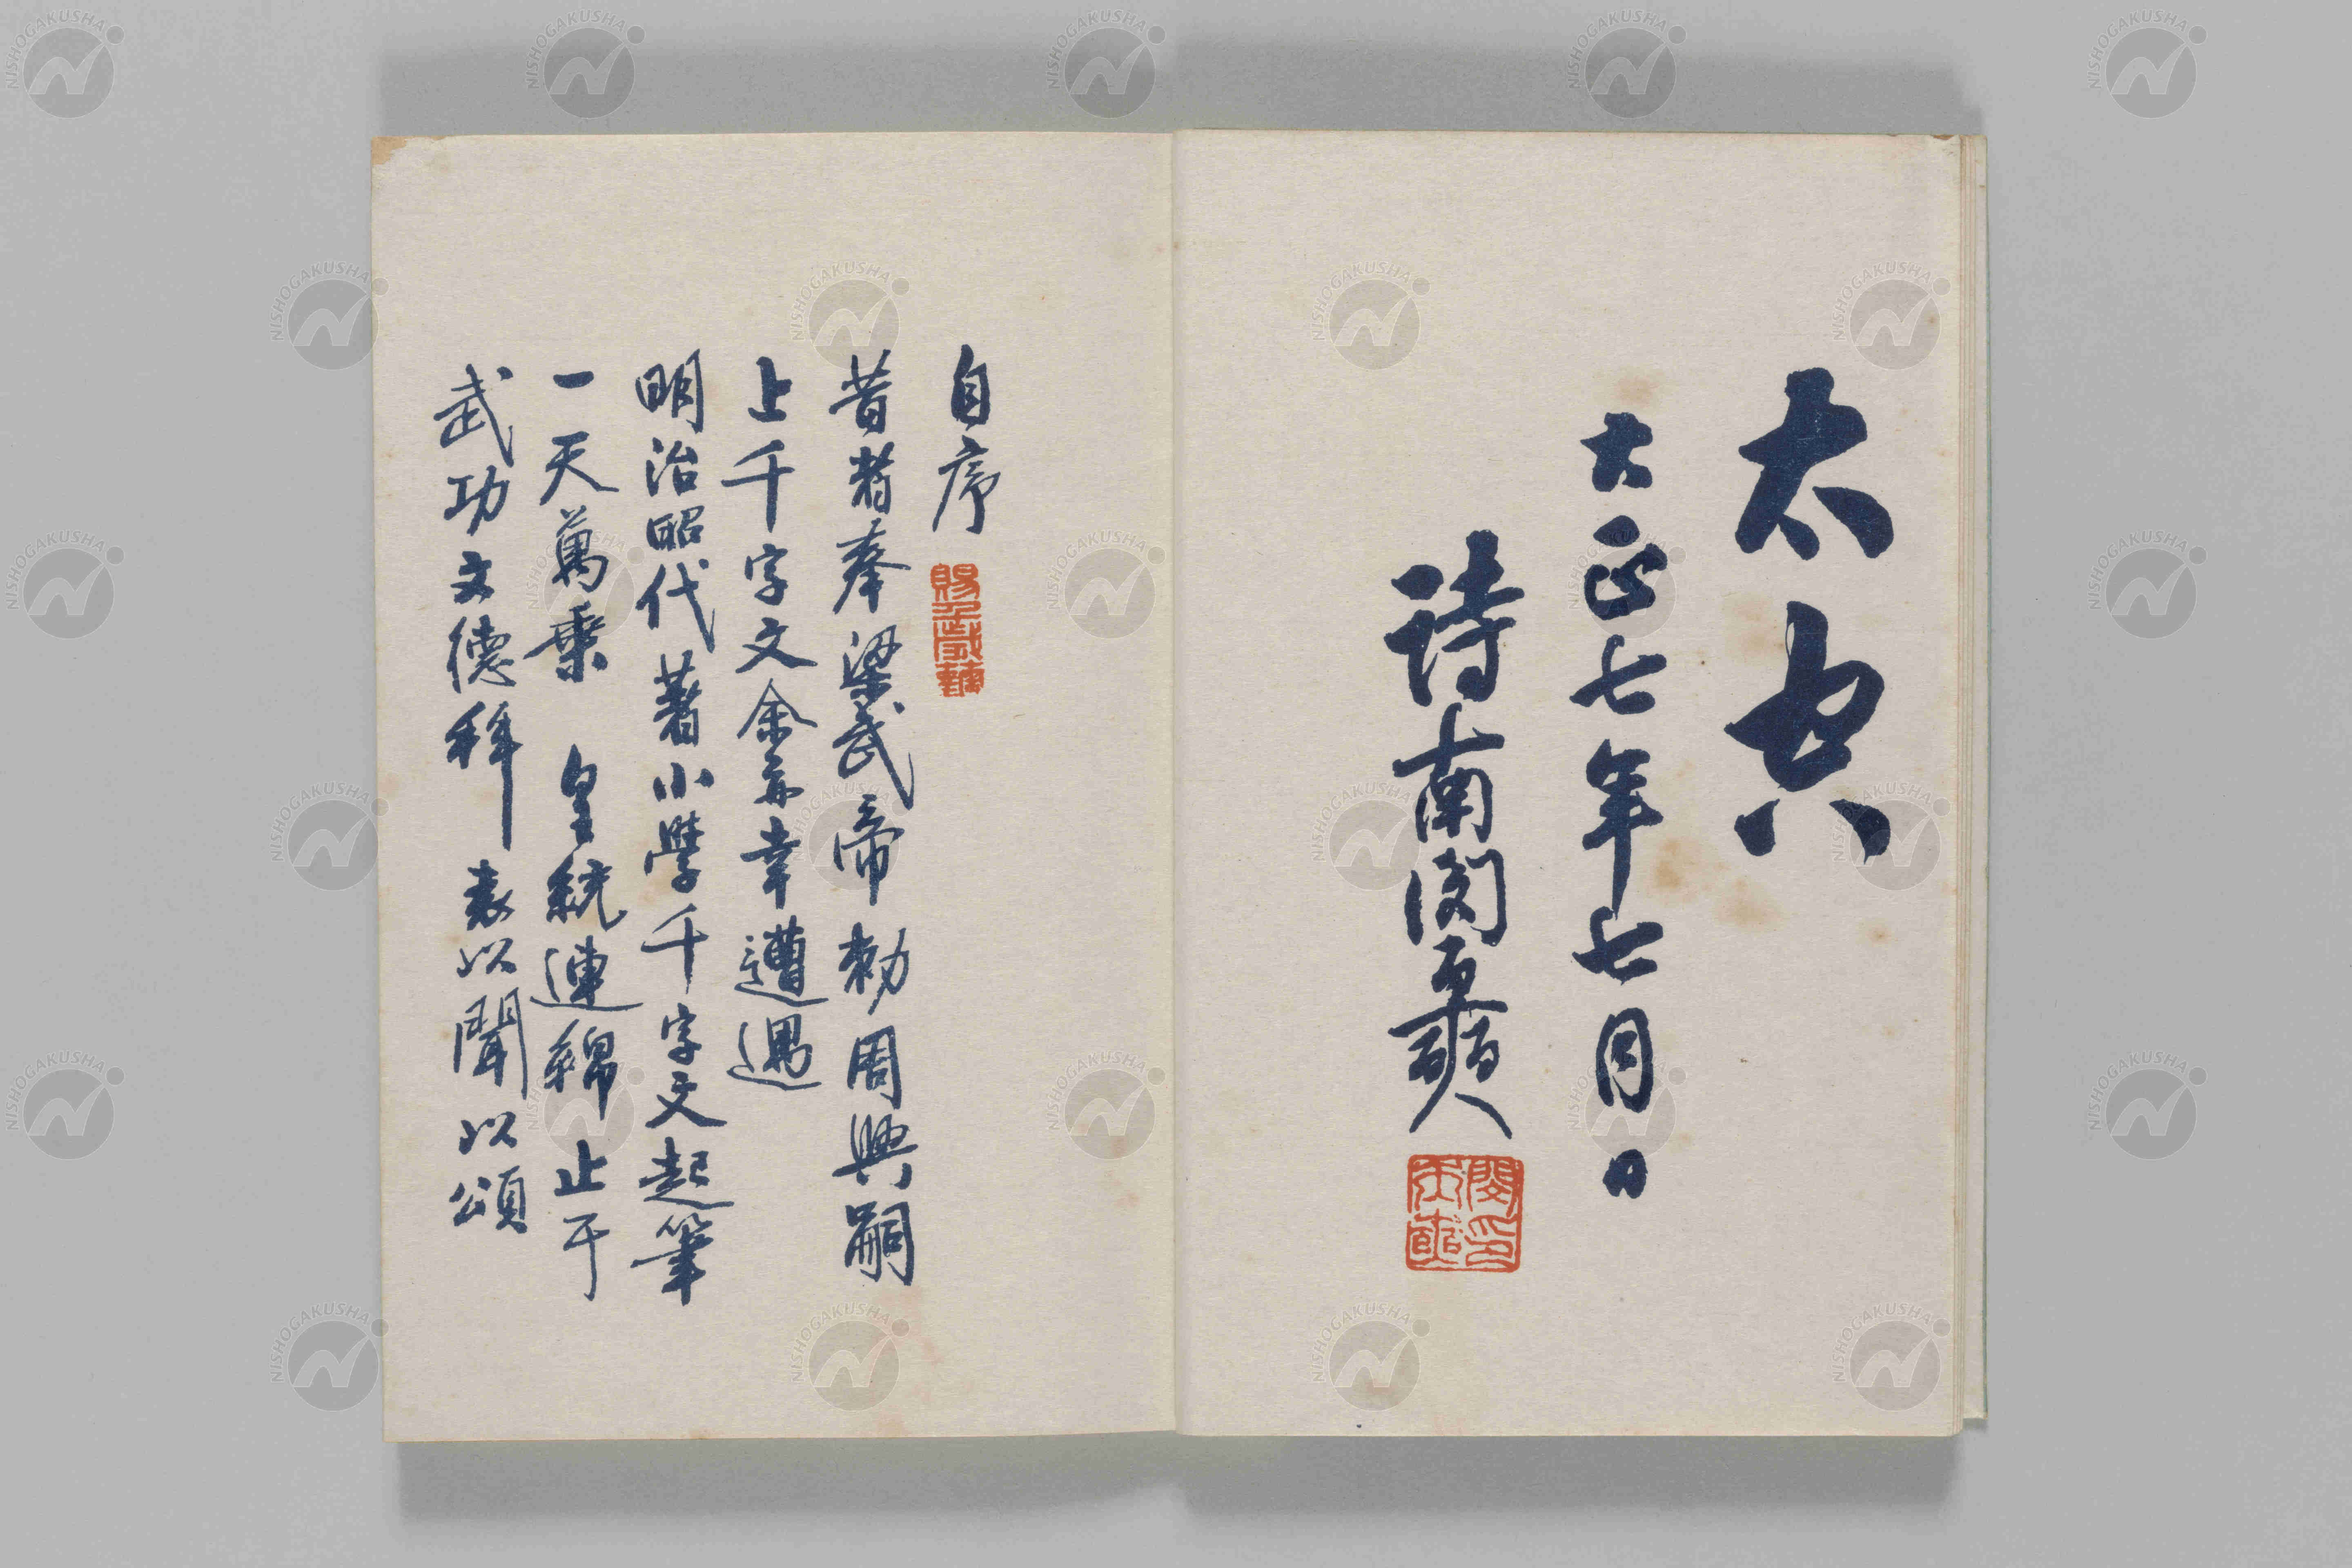 大正七年七月日
自序
昔者奉梁武帝勅周興嗣
上千字文余亦幸遭遇
明治昭代著小學千字文起筆
一天萬乘 皇統連綿止于
武功文德拜表以聞以頌
NISHOGAKUSHA